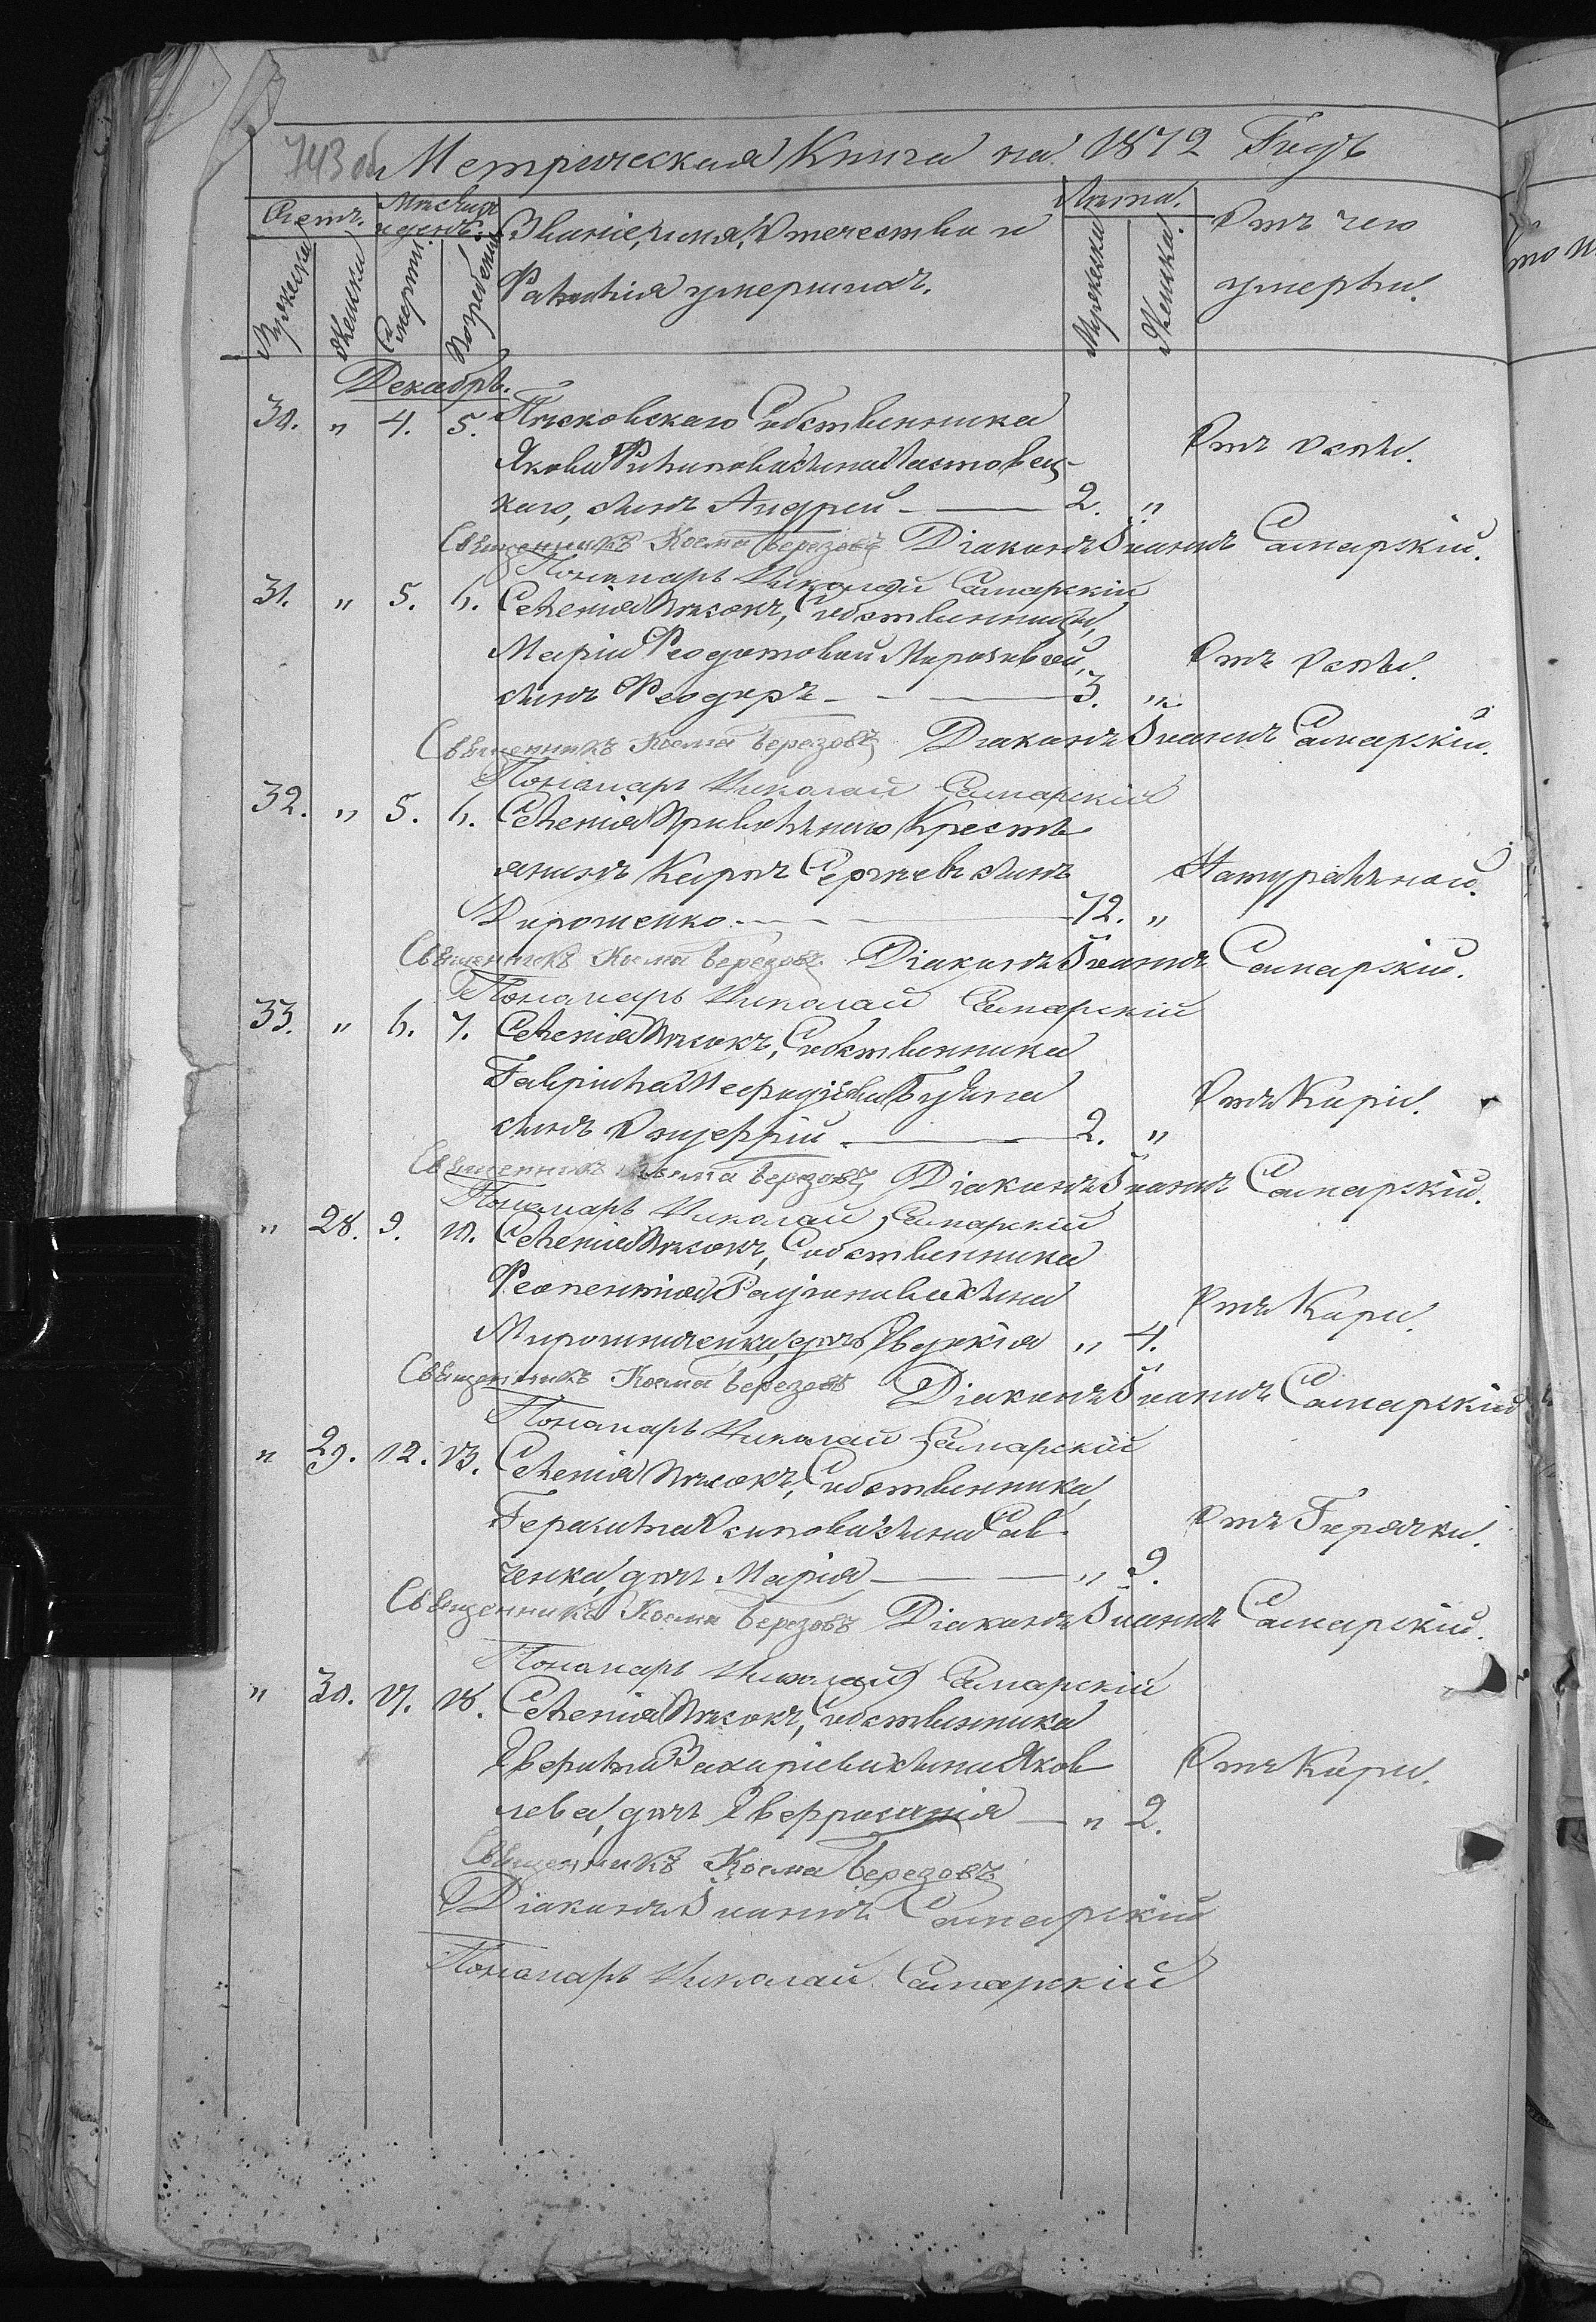 743 об
Метрическая Книга на 1872 Годъ
Счетъ. Мѣсяцъ и день. Званіе, имя, отчество и Лѣта. Отъ чего
Мужеска Женска Смерти. Погребенія Фамилія умершихъ. Мужеска Женска. умерли.
Декабрь.
30. " 4. 5. Пѣсковскаго Собственника
Якова Филипова сына Ластовец- Отъ оспы.
каго, сынъ Андрей 2. "
Священникъ Косма Березовъ Діаконъ Іоаннъ Самарскій.
Пономарь Николай Самарскій
31. " 5. 6. Селенія Пѣсокъ, Собственницы,
Маріи Феодотовой Морозовой, Отъ оспы.
сынъ Феодоръ 3. "
Священникъ Косма Березовъ Діаконъ Іоаннъ Самарскій.
Пономарь Николай Самарскій
32. " 5. 6. Селенія Привольнаго Кресть
янинъ Карпъ Сергѣевъ сынъ Натуральной.
Дорошенко 72. "
Священникъ Косма Березовъ Діаконъ Іоаннъ Самарскій.
Пономарь Николай Самарскій
33. " 6. 7. Селенія Пѣсокъ, Собственника
Гавріила Бузина Отъ Кори.
сынъ Онуфрій 2. "
Священникъ Косма Березовъ Діаконъ Іоаннъ Самарскій.
Пономарь Николай Самарскій
" 28. 9. 10. Селенія Пѣсокъ, Собственника
Феопентія Родіонова сына Отъ Кори.
Мирошниченка, дочь Евдокія " 4.
Священникъ Косма Березовъ Діаконъ Іоаннъ Самарскій
Пономарь Николай Самарскій
" 29. 12. 13. Селенія Пѣсокъ, Собственника,
Герасима Осипова сына Сав Отъ Горячки.
ченка, дочь Марія " 9.
Священникъ Косма Березовъ Діаконъ Іоаннъ Самарскій.
Пономарь Николай Самарскій
" 30. 17. 18. Селенія Пѣсокъ, Собственника
Захаріева сына Яков Отъ Кори.
лева, дочь Евфросинія " 2.
Священникъ Косма Березовъ
Діаконъ Іоаннъ Самарскій
Пономарь Николай Самарскій